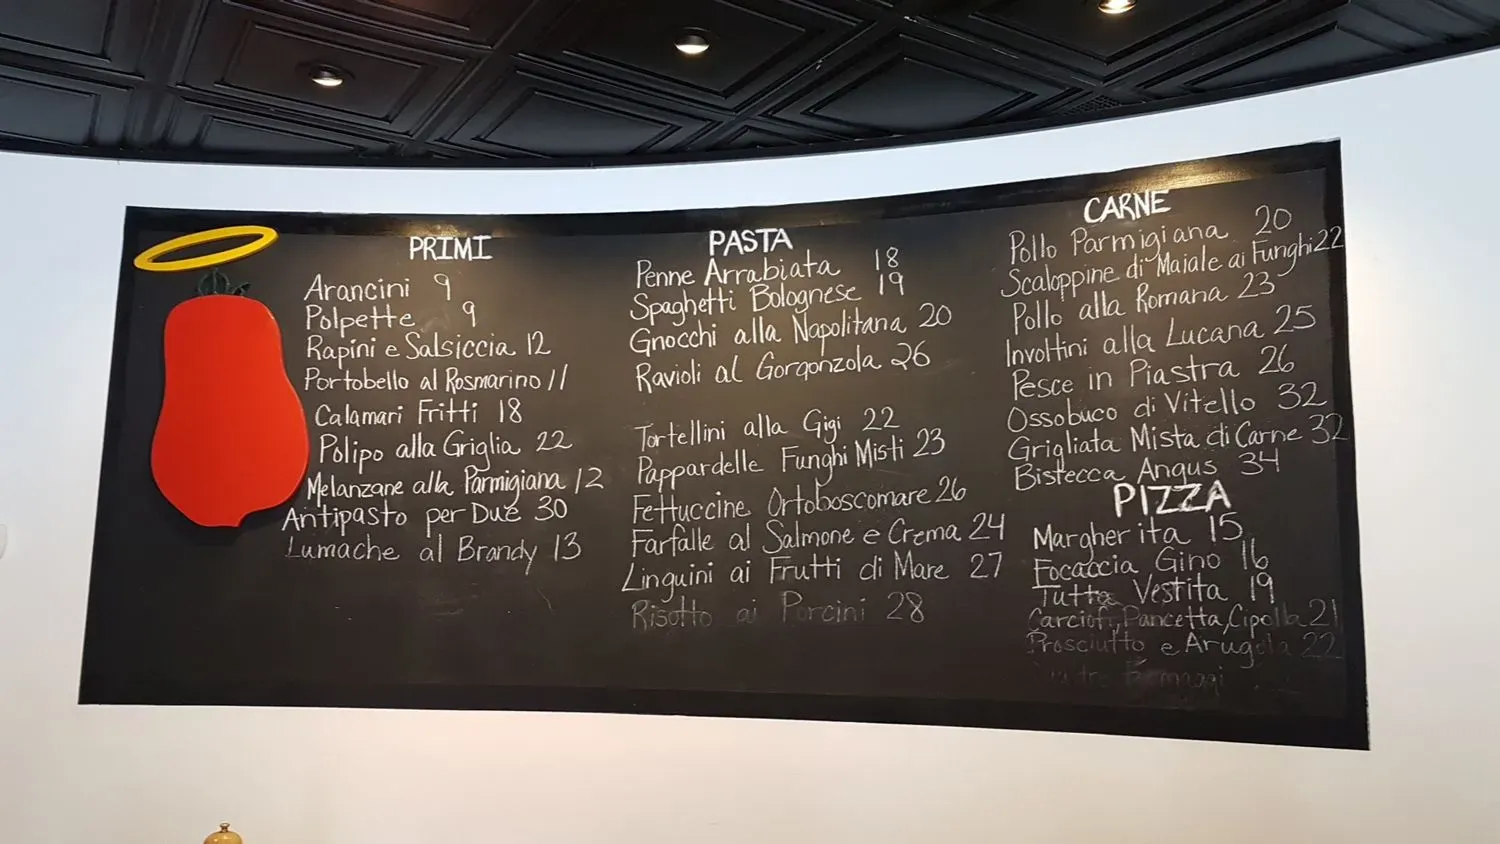 PRIMI
Arancini 9
Polpette 9
Rapini e Salsiccia 12
Portobello al Rosmarino 11
Calamari Fritti 18
Polipo alla Griglia 22
Melanzane alla Parmigiana 12
Antipasto per Due 30
Lumache al Brandy 13
PASTA
Penne Arrabiata 18
Spaghetti Bolognese 19
Gnocchi alla Napolitana 20
Ravioli al Gorgonzola 26
Tortellini alla Gigi 22
Pappardelle Funghi Misti 23
Fettuccine Ortoboscomare 26
Farfalle al Salmone e Crema 24
Linguini ai Frutti di Mare 27
Risotto ai Porcini 28
CARNE
Pollo Parmigiana 20
Scaloppine di Maiale ai Funghi 22
Pollo alla Romana 23
Involtini alla Lucana 25
Pesce in Piastra 26
Ossobuco di Vitello 32
Grigliata Mista di Carne 32
Bistecca Angus 34
PIZZA
Margherita 15
Focaccia Gino 16
Tutta Vestita 19
Carciofi, Pancetta, Cipolla 21
Prosciutto e Arugola 22
Formaggi